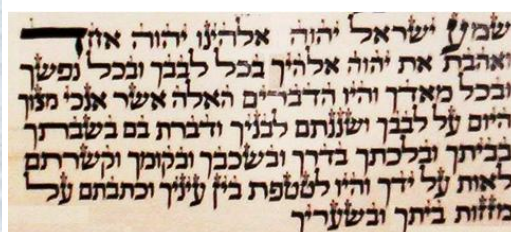 שמע ישראל יהוה אלהינו יהוה אחד
ואהבת את יהוה אלהיך בכל לבבך ובכל נפשך
ובכל מאדך והיו הדברים האלה אשר אנכי מצוך
היום על לבבך ושננתם לבניך ודברת בם בשבתך
בביתך ובלכתך בדרך ובשכבך ובקומך וקשרתם
לאות על ידך והיו לטטפת בין עיניך וכתבתם על
מזזות ביתך ובשעריך